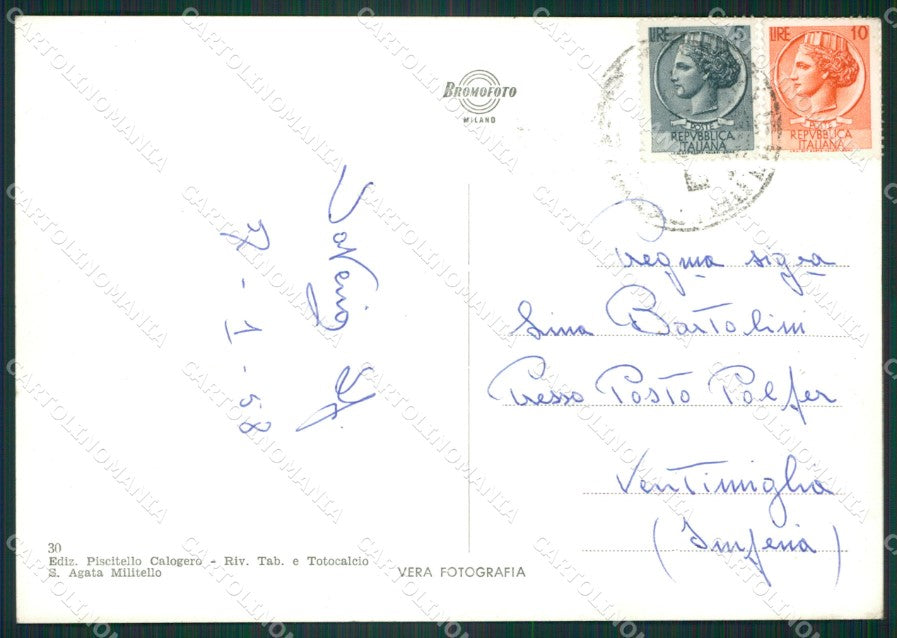 LIRE 5
POSTE
REPVBBLICA
ITALIANA
LIRE 10
POSTE
REPVBBLICA
ITALIANA
BROMOFOTO
MILANO
7-1-58
Preg.ma sig.ra
Lina Bartolini
Presso Posto Polfer
Ventimiglia
(Imperia)
30
Ediz. Piscitello Calogero - Riv. Tab. e Totocalcio
S. Agata Militello
VERA FOTOGRAFIA
CARTOLINOMANIA